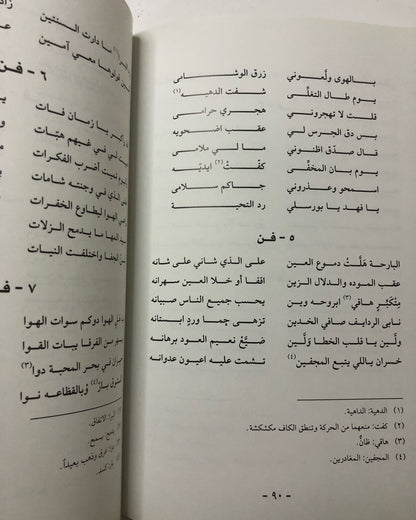 بالهوى ولّعوني زرق الوشامى
يوم طال التغلّي شفت الدهيه (١)
قلت لا تهجروني هجري حرامى
بس دق الجرس لي عقب اضحويه
قال صدّق اظنوني ما لي ملامى
يوم بان المخفّي كفّتْ (٢) ايديّه
اسمحو وعذروني جاكم سلامى
يا فهد يا بورسلي رد التحية
٥ - فن
البارحة هَلَّتْ دموع العين على الذي شاني على شانه
عقب الموده والدلال الزين اقفا أو خلا العين سهرانه
مِتْكَبِّر هاقي (٣) ابروحه وين يحسب جميع الناس صبيانه
نابى الردايف صافي الخدين تزهى چما وردٍ ابستانه
ولّين يا قلب الخطا ولّين ضيَّع نعيم العود برهانه
خسران ياللي يتبع المجفين (٤) تشمت عليه اعيون عدوانه
(١) الدهية: الداهية.
(٢) كفت: منعهما من الحركة وتنطق الكاف مكشكشة.
(٣) هاقي: ظانٌّ.
(٤) المجفين: المغادرين.
- ٩٠ -
ما دارت السنتين
قولوها معي آمين
٦ - فن
يا زمان فات
لي في غيهم هبّات
أضرب الفكرات
الذي في وجنته شامات
الهوا ليطاوع الخفرات
ما يدمج الزلات
الحفا واختلفت النيات
٧ - ف
الهوا دوكم سوات الهوا
من الفرقا يبات القوا
في بحر المحبة دوا (٣)
(٤) وُبالقظاعه نوا